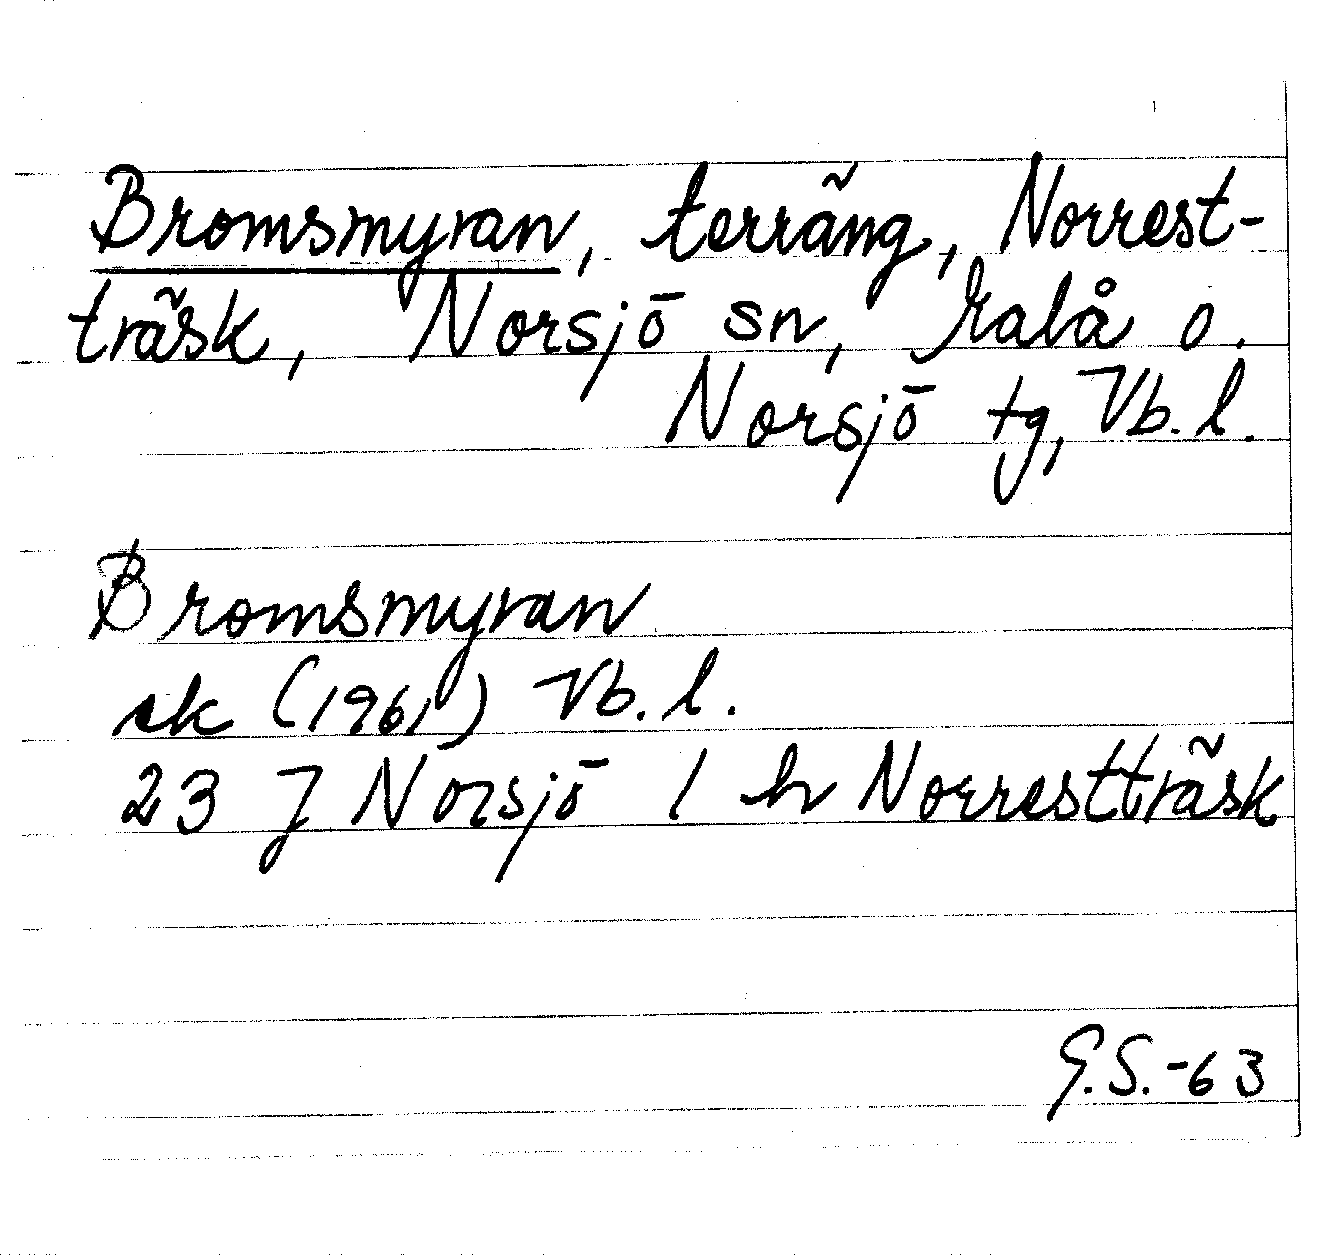 Bromsmyran, terräng, Norrest-
träsk, Norsjö sn, Malå o.
Norsjö tg, Vb. l.
Bromsmyran
ek (1961) Vb. l.
23 J Norsjö 1 h Norrestträsk
G.S.-63